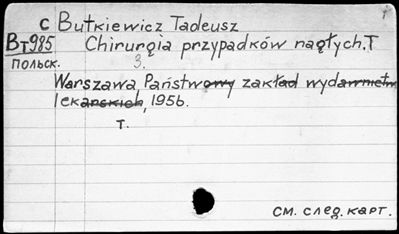 с Butkiewicz Tadeusz
Вт985 Chirurgia przypadków nagłych. T
польск. 3.
Warszawa, Państwowy zakład wydawnictw
lekarskich, 1956.
T.
см. след. карт.